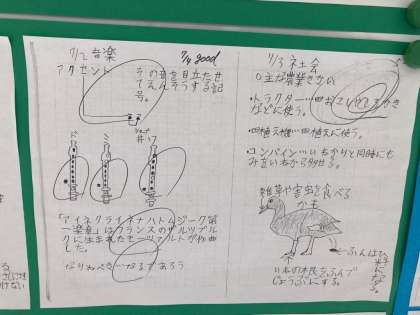 7/2 音楽
アクセント
その音を目立たせ
てえんそうする記
号。
7/4 good
ド
ミ
シャープ
#ソ
「アイネクライネナハトムジーク第
一楽章」はフランスのザルツブル
クに生まれたモーツァルトが作曲
した。
なりぬべき…なるであろう
7/3 社会
○主な農業きかい
・トラクター…田おこしや
などに使う。
・田植え機…田植えに使う。
・コンバイン…いねかりと同時にも
みをいねから
雑草や害虫を食べる
かも
ふんはひ
料になる。
いねの根をふんで
じょうぶにする。